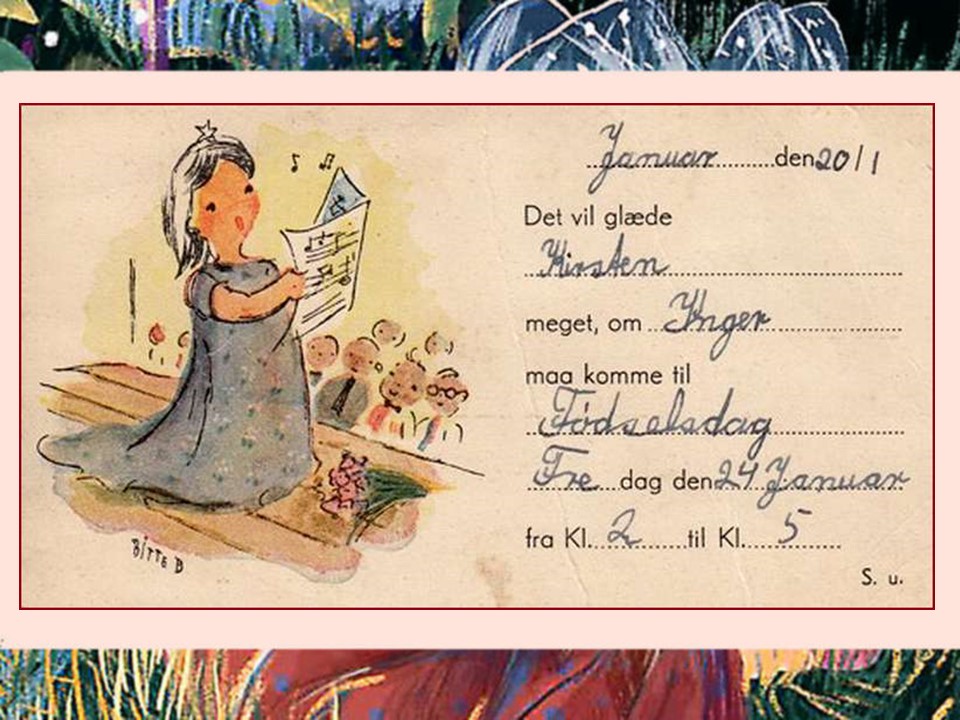 Januar den 20/1
Det vil glæde
Kirsten
meget, om Inger
maa komme til
Fødselsdag
Fre dag den 24 Januar
fra Kl. 2 til Kl. 5
S. u.
BITTE B